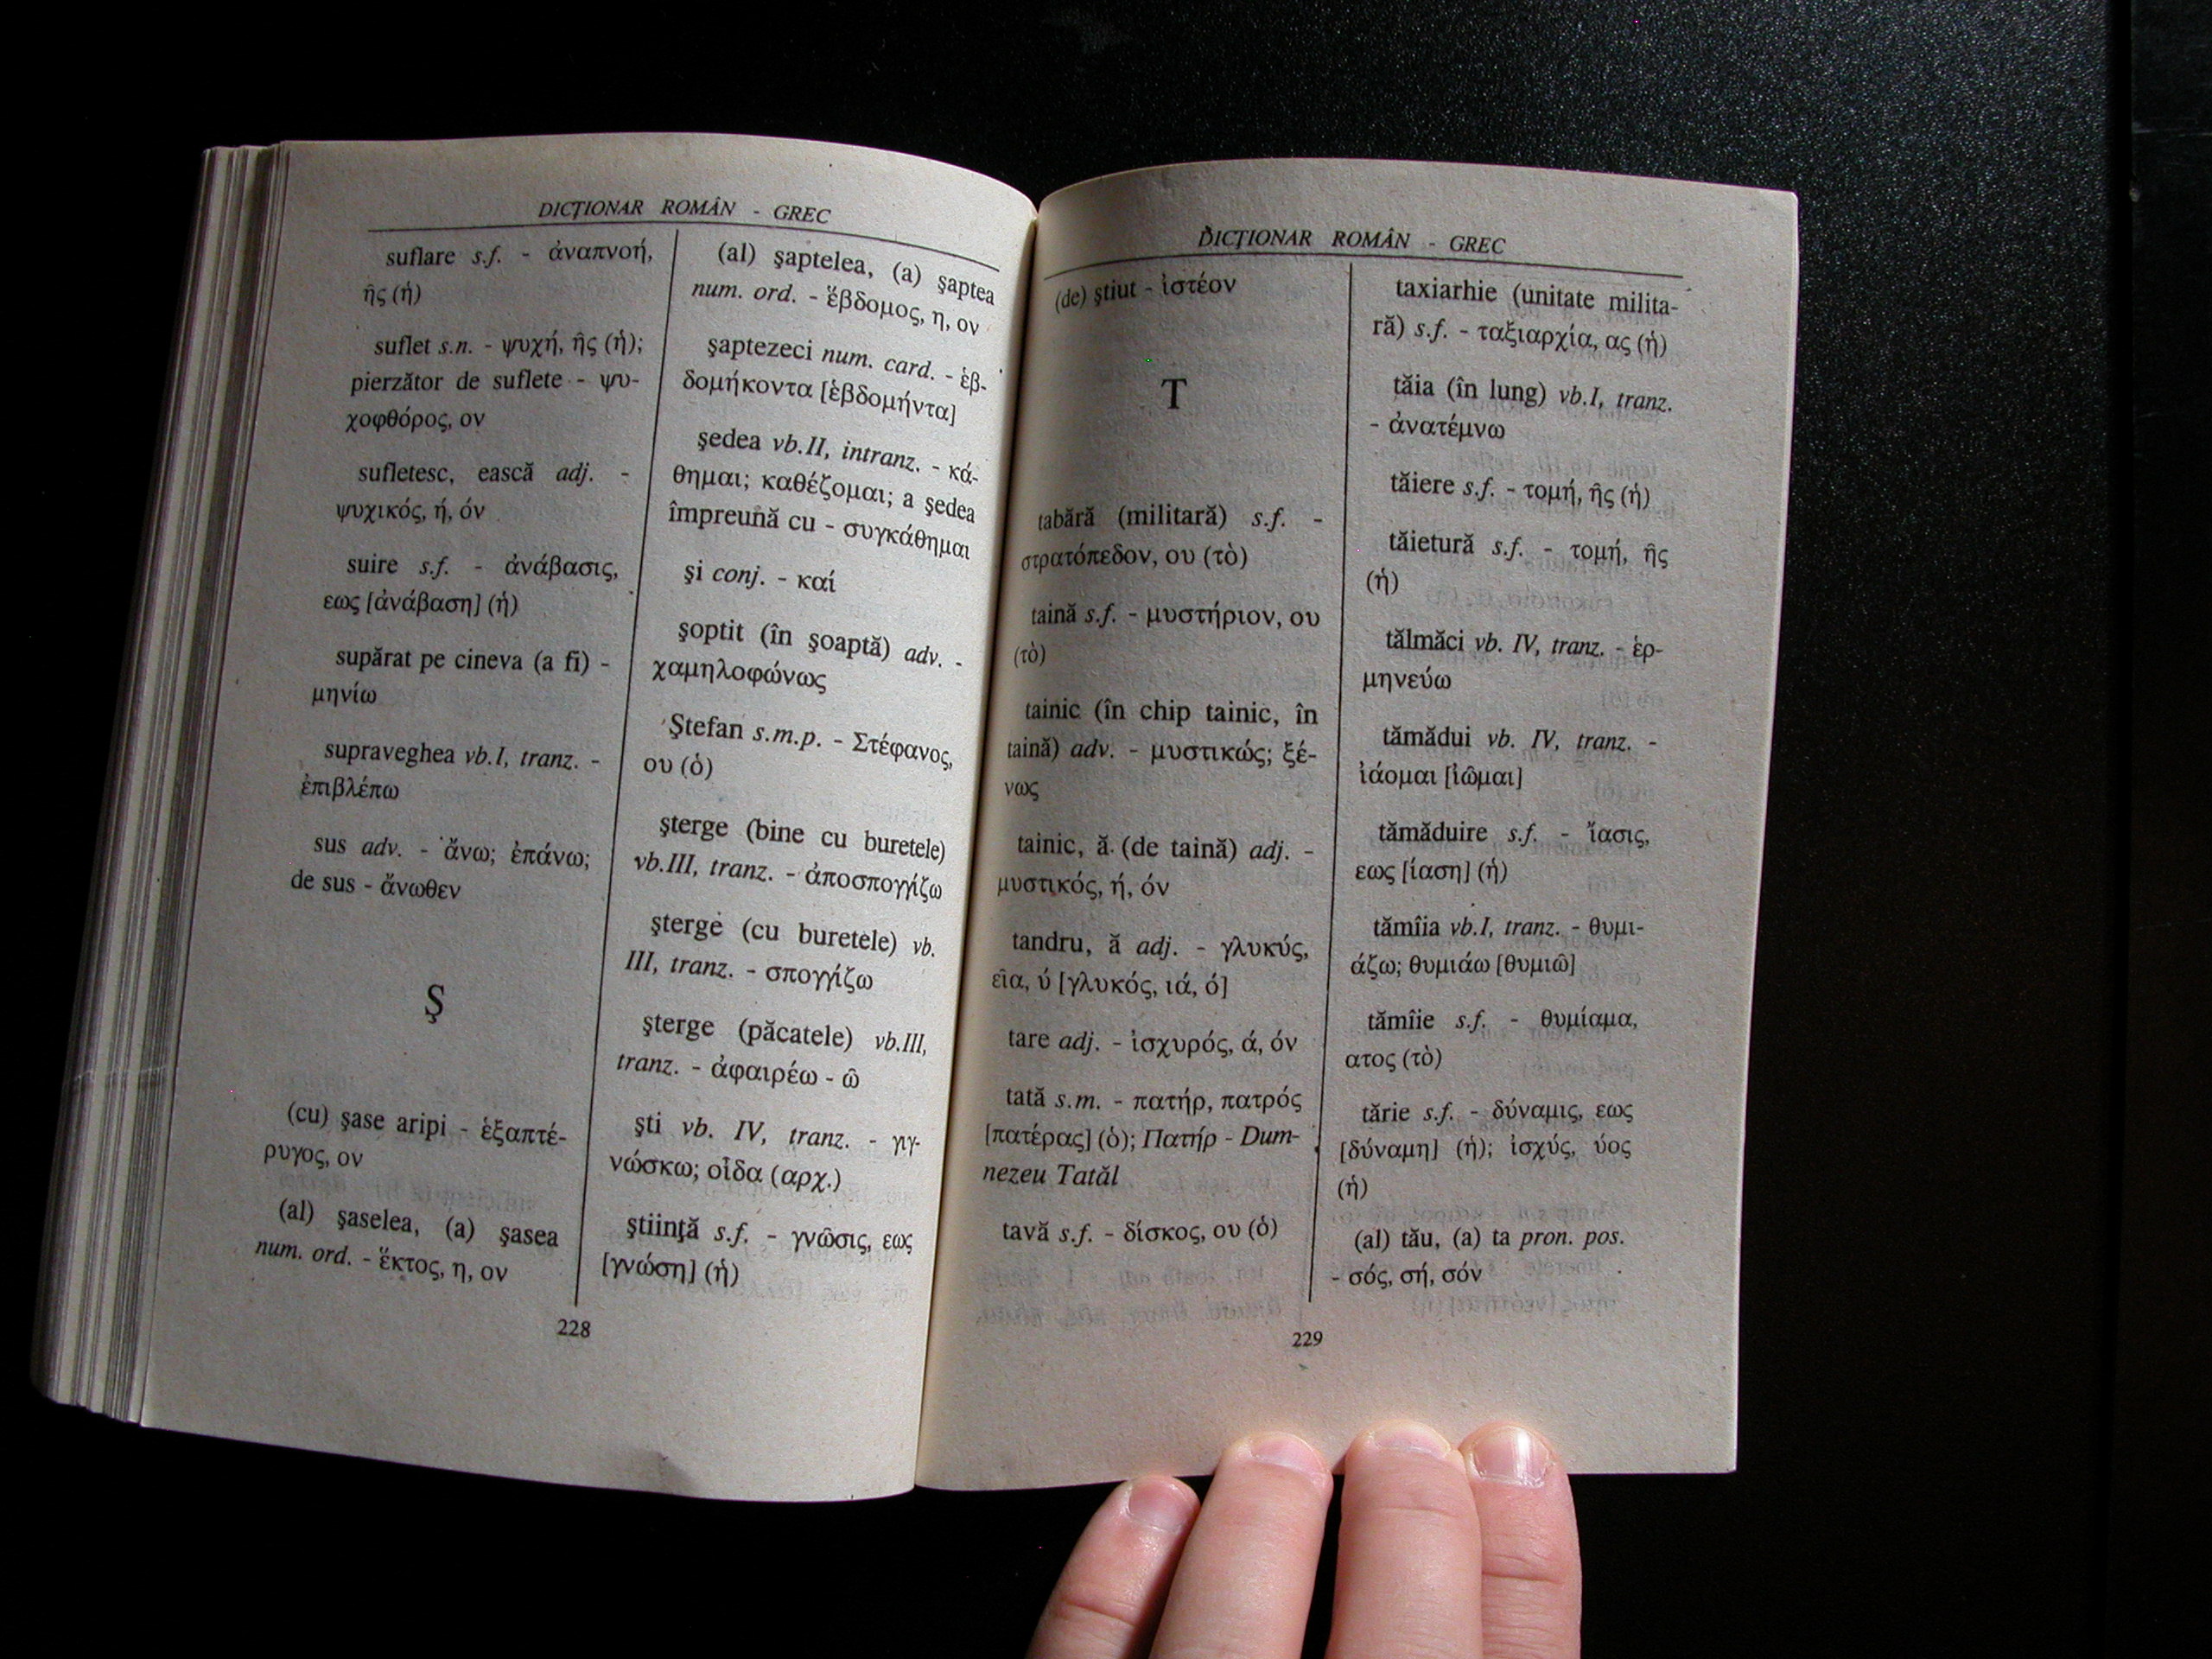 DICŢIONAR ROMÂN - GREC
suflare s.f. - ἀναπνοή,
ῆς (ἡ)
suflet s.n. - ψυχή, ῆς (ἡ);
pierzător de suflete - ψυ-
χοφθόρος, ον
sufletesc, ească adj. -
ψυχικός, ή, όν
suire s.f. - ἀνάβασις,
εως [ἀνάβαση] (ἡ)
supărat pe cineva (a fi) -
μηνίω
supraveghea vb.I, tranz. -
ἐπιβλέπω
sus adv. - ἄνω; ἐπάνω;
de sus - ἄνωθεν
Ş
(cu) şase aripi - ἑξαπτέ-
ρυγος, ον
(al) şaselea, (a) şasea
num. ord. - ἕκτος, η, ον
(al) şaptelea, (a) şaptea
num. ord. - ἕβδομος, η, ον
şaptezeci num. card. - ἑβ-
δομήκοντα [ἑβδομήντα]
şedea vb.II, intranz. - κά-
θημαι; καθέζομαι; a şedea
împreună cu - συγκάθημαι
şi conj. - καί
şoptit (în şoaptă) adv. -
χαμηλοφώνως
Ştefan s.m.p. - Στέφανος,
ου (ὁ)
şterge (bine cu buretele)
vb.III, tranz. - ἀποσπογγίζω
şterge (cu buretele) vb.
III, tranz. - σπογγίζω
şterge (păcatele) vb.III,
tranz. - ἀφαιρέω - ῶ
şti vb. IV, tranz. - γιγ-
νώσκω; οἶδα (αρχ.)
ştiinţă s.f. - γνῶσις, εως
[γνώση] (ἡ)
228
DICŢIONAR ROMÂN - GREC
(de) ştiut - ἰστέον
T
tabără (militară) s.f. -
στρατόπεδον, ου (τὸ)
taină s.f. - μυστήριον, ου
(τὸ)
tainic (în chip tainic, în
taină) adv. - μυστικώς; ξέ-
νως
tainic, ă (de taină) adj. -
μυστικός, ή, όν
tandru, ă adj. - γλυκύς,
εῖα, ύ [γλυκός, ιά, ό]
tare adj. - ἰσχυρός, ά, όν
tată s.m. - πατήρ, πατρός
[πατέρας] (ὁ); Πατήρ - Dum-
nezeu Tatăl
tavă s.f. - δίσκος, ου (ὁ)
taxiarhie (unitate milita-
ră) s.f. - ταξιαρχία, ας (ἡ)
tăia (în lung) vb.I, tranz.
- ἀνατέμνω
tăiere s.f. - τομή, ῆς (ἡ)
tăietură s.f. - τομή, ῆς
(ἡ)
tălmăci vb. IV, tranz. - ἑρ-
μηνεύω
tămădui vb. IV, tranz. -
ἰάομαι [ἰῶμαι]
tămăduire s.f. - ἴασις,
εως [ίαση] (ἡ)
tămîia vb.I, tranz. - θυμι-
άζω; θυμιάω [θυμιῶ]
tămîie s.f. - θυμίαμα,
ατος (τὸ)
tărie s.f. - δύναμις, εως
[δύναμη] (ἡ); ἰσχύς, ύος
(ἡ)
(al) tău, (a) ta pron. pos.
- σός, σή, σόν
229